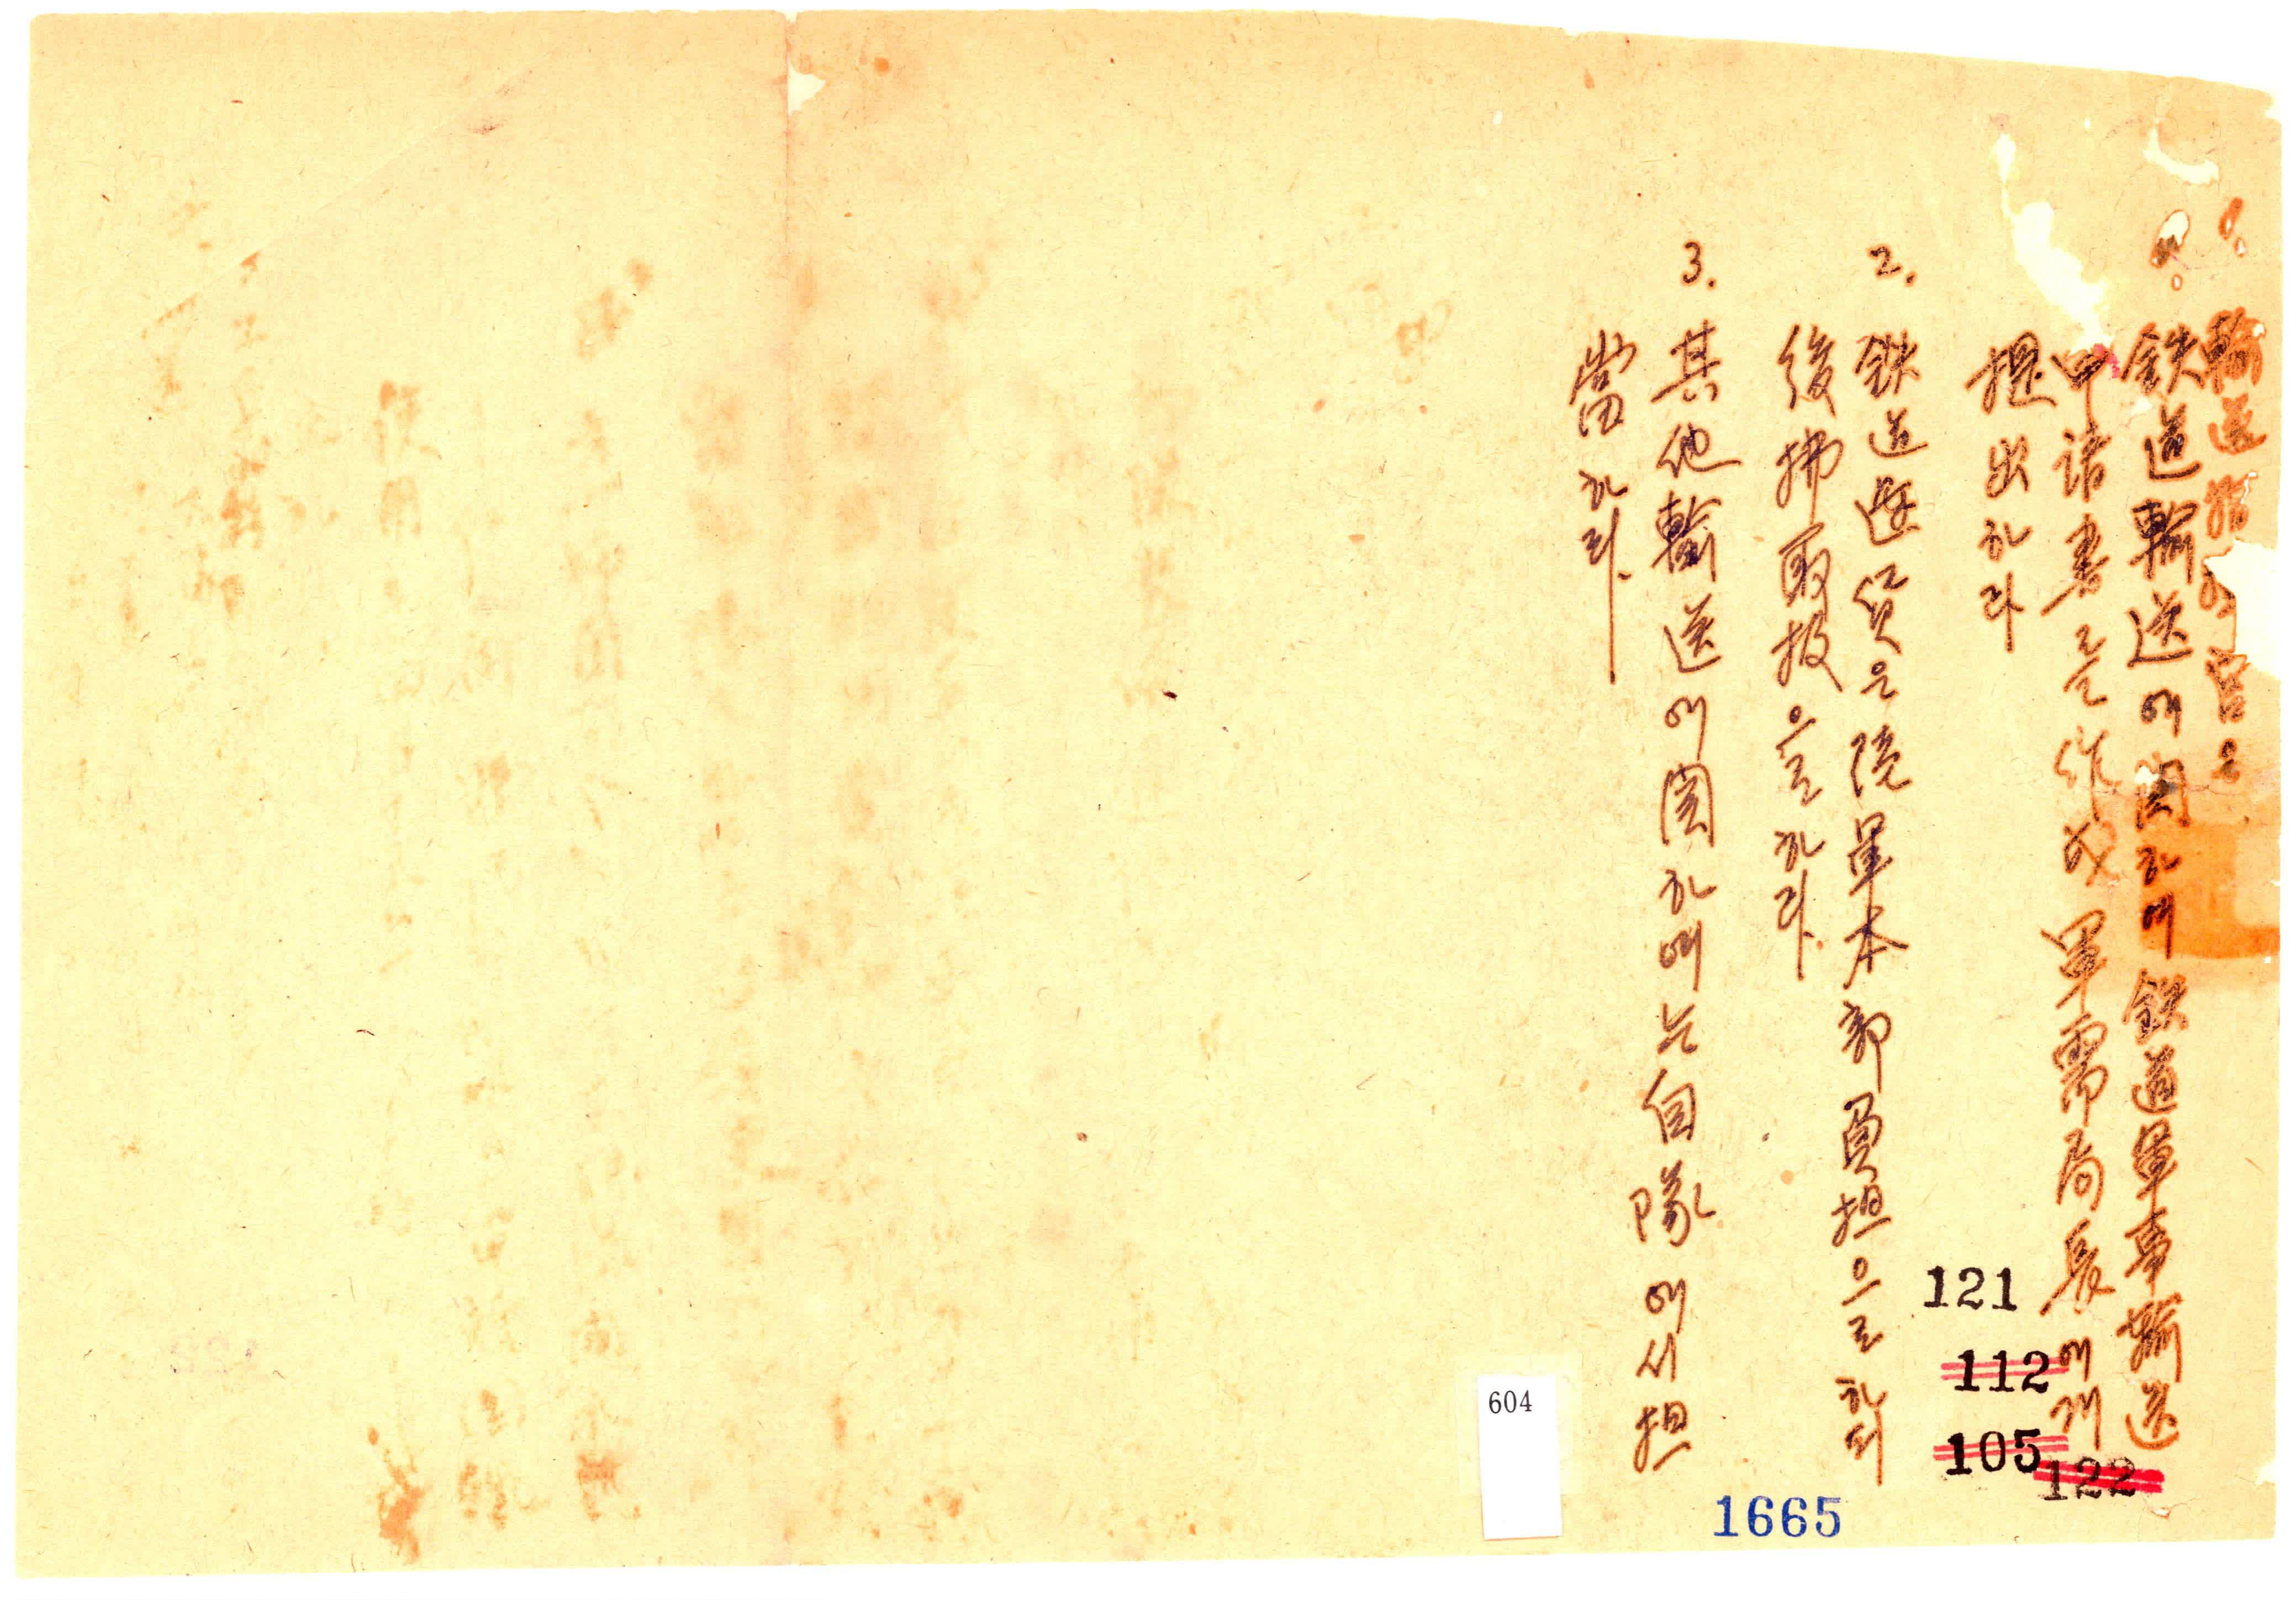 輸送指揮官은
鉄道輸送에 関하여 鉄道軍事輸送
申請書를 作成 軍需局長에게
提出하라
2. 鉄道運賃은 陸軍本部負担으로 하되
後拂取扱으로 하라.
3. 其他輸送에 関하여는 自隊에서 担
當하라.
121
112
105
122
604
1665